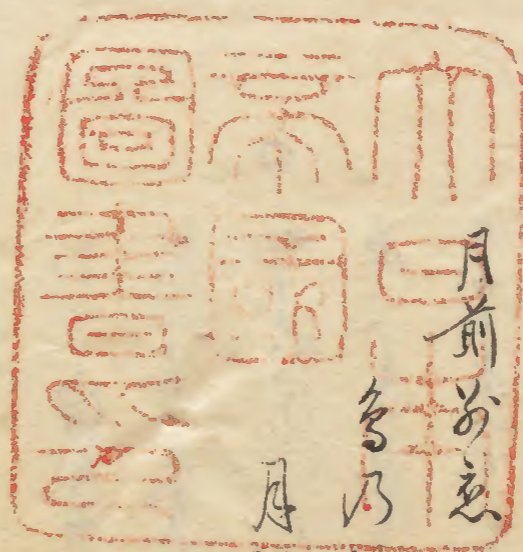 大日本
帝國
圖書印
月前別恋
鳥乃
月